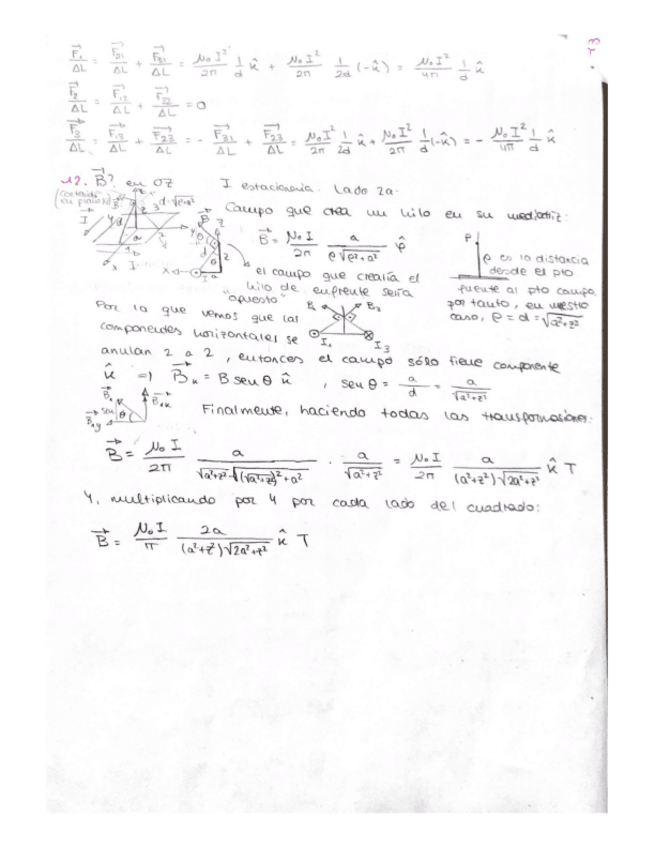 43
F₁/ΔL = F₂₁/ΔL + F₃₁/ΔL = μ₀I²/2π 1/d k̂ + μ₀I²/2π 1/2d (-k̂) = μ₀I²/4π 1/d k̂
F₂/ΔL = F₁₂/ΔL + F₃₂/ΔL = 0
F₃/ΔL = F₁₃/ΔL + F₂₃/ΔL = - F₃₁/ΔL + F₂₃/ΔL = μ₀I²/2π 1/2d k̂ + μ₀I²/2π 1/d (-k̂) = - μ₀I²/4π 1/d k̂
12. B? en OZ I estacionaria. Lado 2a.
Campo que crea un hilo en su mediatriz:
B = μ₀I/2π a/ρ√ρ²+a² φ̂
ρ es la distancia
desde el pto
el campo que crearía el
hilo de enfrente sería
"opuesto"
fuente al pto campo,
por tanto, en nuestro
caso, ρ = d = √a²+z²
Por lo que vemos que las
componentes horizontales se
anulan 2 a 2, entonces el campo sólo tiene componente
k̂ => Bₖ = B senθ k̂ , senθ = a/d = a/√a²+z²
Finalmente, haciendo todas las transformaciones:
B = μ₀I/2π a/√a²+z² √(√a²+z²)²+a² · a/√a²+z² = μ₀I/2π a/(a²+z²)√2a²+z² k̂ T
Y, multiplicando por 4 por cada lado del cuadrado:
B = μ₀I/π 2a/(a²+z²)√2a²+z² k̂ T